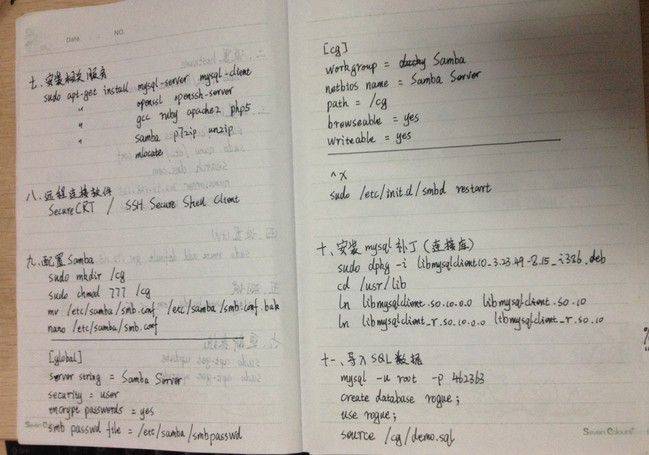 Date NO.
七、安装相关服务
sudo apt-get install mysql-server mysql-client
" openssl openssh-server
" gcc ruby apache2 php5
" samba p7zip unzip
mlocate
八、远程连接软件
SecureCRT / SSH Secure Shell Client
九、配置Samba
sudo mkdir /cg
sudo chmod 777 /cg
mv /etc/samba/smb.conf /etc/samba/smb.conf.bak
nano /etc/samba/smb.conf
[global]
server string = Samba Server
security = user
encrypt passwords = yes
smb passwd file = /etc/samba/smbpasswd
[cg]
workgroup = Samba
netbios name = Samba Server
path = /cg
browseable = yes
writeable = yes
^X
sudo /etc/init.d/smbd restart
十、安装mysql补丁(连接库)
sudo dpkg -i libmysqlclient10_3.23.49-8.15_i386.deb
cd /usr/lib
ln libmysqlclient.so.10.0.0 libmysqlclient.so.10
ln libmysqlclient_r.so.10.0.0 libmysqlclient_r.so.10
十一、导入SQL数据
mysql -u root -p 462363
create database rogue;
use rogue;
source /cg/demo.sql